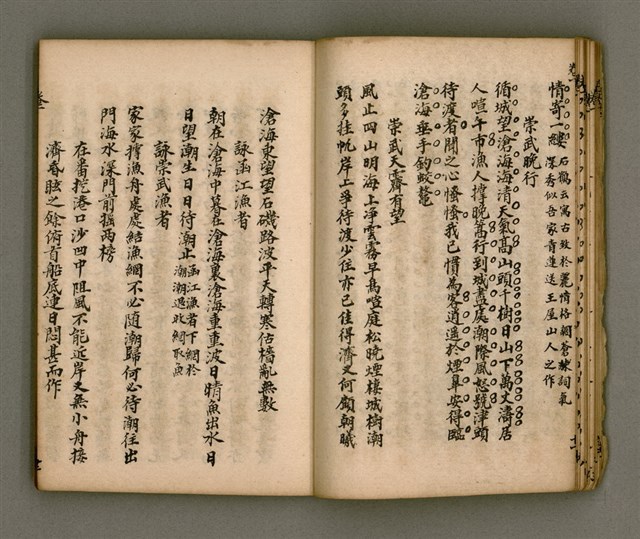 情寄一縷 石鷗云寓古致於麗情格調蒼棶詞氣
深秀似吾家青蓮送王屋山人之作
崇武晚行
循城望滄海海清天氣高山頭千樹日山下萬丈濤居
人喧午市漁人撐晚蒿行到城盡處潮際風怒號津頭
待渡者聞之心慅慅我已慣為客逍遥於煙皐安得臨
滄海垂手釣鮫鼇
崇武天霽有望
風止四山明海上淨雲霧早鳥噎庭松曉煙棲城樹潮
頭多挂帆岸上爭待渡少住亦已佳得濟又何顧朝曦
滄海東望望石磯路波平天轉寒估檣亂無數
詠函江漁者
朝在滄海中暮在滄海裏滄海重重波日晴魚出水日
日望潮生日日待潮止 函江漁者下綱於
潮潮退收綱取魚
詠崇武漁者
家家撐漁舟處處結漁綱不必随潮歸何必待潮往出
門海水深門前搖兩榜
在番挖港口沙凹中阻風不能近岸又無小舟接
濟昏眩之餘術首船底連日悶甚而作